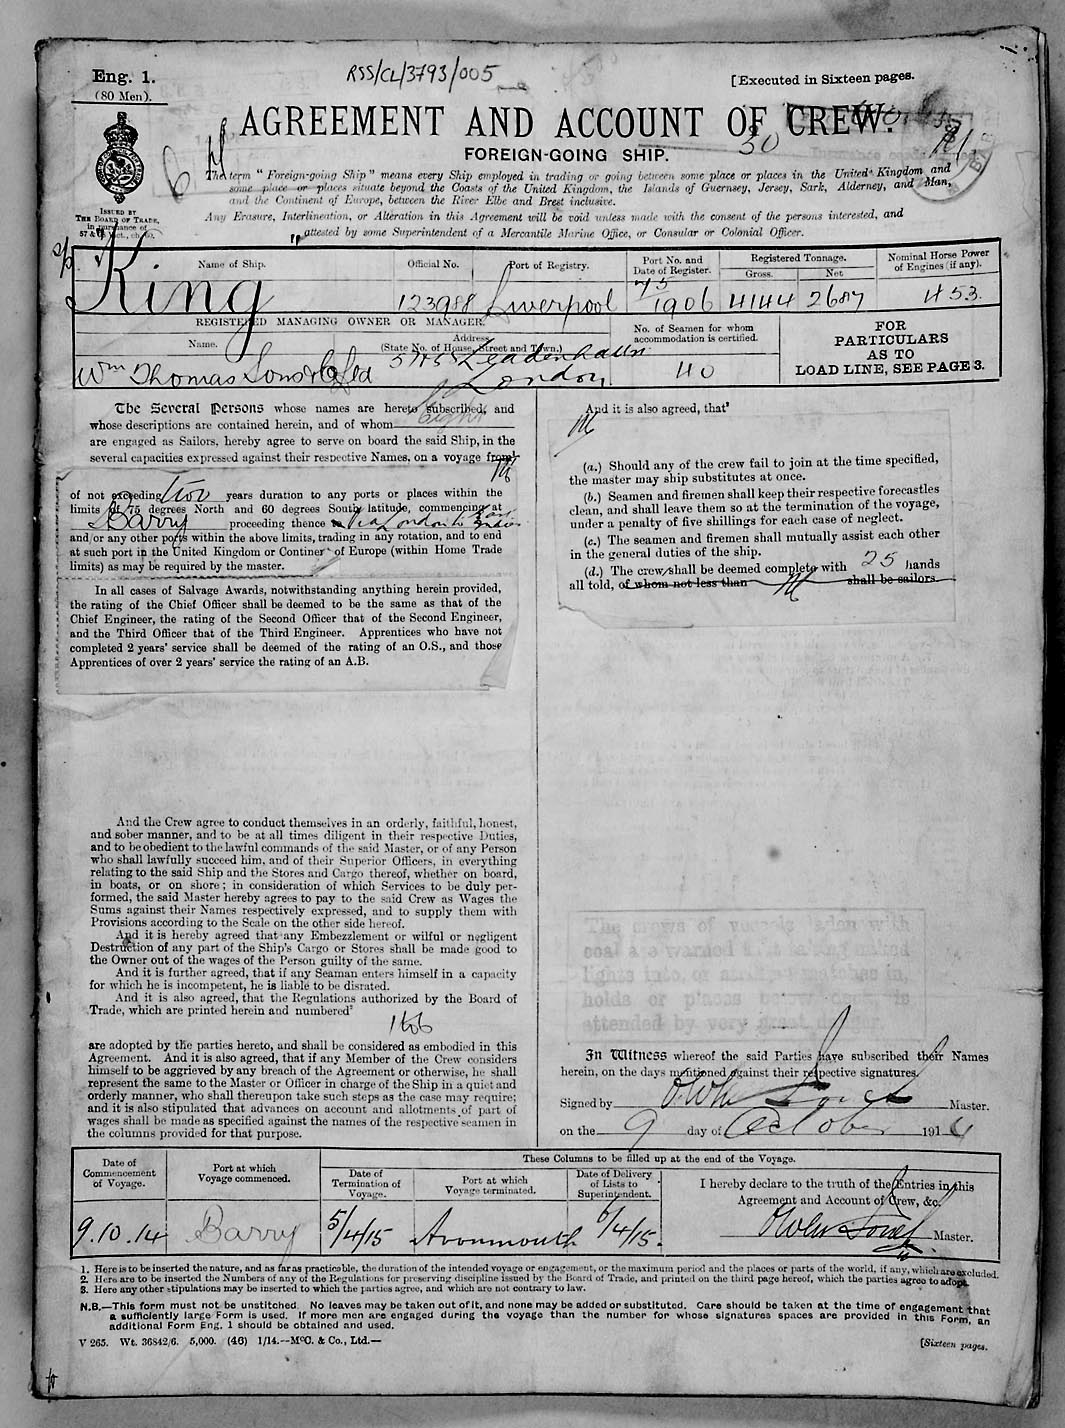 Eng. 1.
(80 Men).
RSS/CL/3793/005
[Executed in Sixteen pages.
AGREEMENT AND ACCOUNT OF CREW.
30
FOREIGN-GOING SHIP.
ISSUED BY
THE BOARD OF TRADE,
in pursuance of
57 & 58 Vict., ch. 60.
The term "Foreign-going Ship" means every Ship employed in trading or going between some place or places in the United Kingdom and
some place or places situate beyond the Coasts of the United Kingdom, the Islands of Guernsey, Jersey, Sark, Alderney, and Man,
and the Continent of Europe, between the River Elbe and Brest inclusive.
Any Erasure, Interlineation, or Alteration in this Agreement will be void unless made with the consent of the persons interested, and
attested by some Superintendent of a Mercantile Marine Office, or Consular or Colonial Officer.
Name of Ship. Official No. Port of Registry. Port No. and Date of Register. Registered Tonnage. Gross. Net Nominal Horse Power of Engines (if any).
King 123988 Liverpool 45 1906 4144 2687 453
REGISTERED MANAGING OWNER OR MANAGER.
Name. Address (State No. of House, Street and Town.) No. of Seamen for whom accommodation is certified.
Wm Thomas Sons & Co Ltd Leadenhall London 40
FOR
PARTICULARS
AS TO
LOAD LINE, SEE PAGE 3.
The Several Persons whose names are hereto subscribed, and
whose descriptions are contained herein, and of whom eight
are engaged as Sailors, hereby agree to serve on board the said Ship, in the
several capacities expressed against their respective Names, on a voyage from
of not exceeding two years duration to any ports or places within the
limits of 75 degrees North and 60 degrees South latitude, commencing at
Barry proceeding thence via London to
and/or any other ports within the above limits, trading in any rotation, and to end
at such port in the United Kingdom or Continent of Europe (within Home Trade
limits) as may be required by the master.
In all cases of Salvage Awards, notwithstanding anything herein provided,
the rating of the Chief Officer shall be deemed to be the same as that of the
Chief Engineer, the rating of the Second Officer that of the Second Engineer,
and the Third Officer that of the Third Engineer. Apprentices who have not
completed 2 years' service shall be deemed of the rating of an O.S., and those
Apprentices of over 2 years' service the rating of an A.B.
And the Crew agree to conduct themselves in an orderly, faithful, honest,
and sober manner, and to be at all times diligent in their respective Duties,
and to be obedient to the lawful commands of the said Master, or of any Person
who shall lawfully succeed him, and of their Superior Officers, in everything
relating to the said Ship and the Stores and Cargo thereof, whether on board,
in boats, or on shore; in consideration of which Services to be duly per-
formed, the said Master hereby agrees to pay to the said Crew as Wages the
Sums against their Names respectively expressed, and to supply them with
Provisions according to the Scale on the other side hereof.
And it is hereby agreed that any Embezzlement or wilful or negligent
Destruction of any part of the Ship's Cargo or Stores shall be made good to
the Owner out of the wages of the Person guilty of the same.
And it is further agreed, that if any Seaman enters himself in a capacity
for which he is incompetent, he is liable to be disrated.
And it is also agreed, that the Regulations authorized by the Board of
Trade, which are printed herein and numbered²
1 to 6
are adopted by the parties hereto, and shall be considered as embodied in this
Agreement. And it is also agreed, that if any Member of the Crew considers
himself to be aggrieved by any breach of the Agreement or otherwise, he shall
represent the same to the Master or Officer in charge of the Ship in a quiet and
orderly manner, who shall thereupon take such steps as the case may require;
and it is also stipulated that advances on account and allotments of part of
wages shall be made as specified against the names of the respective seamen in
the columns provided for that purpose.
And it is also agreed, that³
(a.) Should any of the crew fail to join at the time specified,
the master may ship substitutes at once.
(b.) Seamen and firemen shall keep their respective forecastles
clean, and shall leave them so at the termination of the voyage,
under a penalty of five shillings for each case of neglect.
(c.) The seamen and firemen shall mutually assist each other
in the general duties of the ship.
(d.) The crew shall be deemed complete with 25 hands
all told, of whom not less than shall be sailors.
The crews of vessels laden with
coal are warned that taking naked
lights into, or striking matches in,
holds or places below deck, is
attended by very great danger.
In Witness whereof the said Parties have subscribed their Names
herein, on the days mentioned against their respective signatures.
Signed by Owen Master.
on the 9 day of October 1914
Date of Commencement of Voyage. Port at which Voyage commenced. These Columns to be filled up at the end of the Voyage.
Date of Termination of Voyage. Port at which Voyage terminated. Date of Delivery of Lists to Superintendent.
I hereby declare to the truth of the Entries in this
Agreement and Account of Crew, &c.
9.10.14 Barry 5/4/15 Avonmouth 6/4/15. Owen Master.
1. Here is to be inserted the nature, and as far as practicable, the duration of the intended voyage or engagement, or the maximum period and the places or parts of the world, if any, which are excluded.
2. Here are to be inserted the Numbers of any of the Regulations for preserving discipline issued by the Board of Trade, and printed on the third page hereof, which the parties agree to adopt.
3. Here any other stipulations may be inserted to which the parties agree, and which are not contrary to law.
N.B.—This form must not be unstitched. No leaves may be taken out of it, and none may be added or substituted. Care should be taken at the time of engagement that
a sufficiently large Form is used. If more men are engaged during the voyage than the number for whose signatures spaces are provided in this Form, an
additional Form Eng. 1 should be obtained and used.
V 265. Wt. 36842/6. 5,000. (46) 1/14.—McC. & Co., Ltd.—
[Sixteen pages.